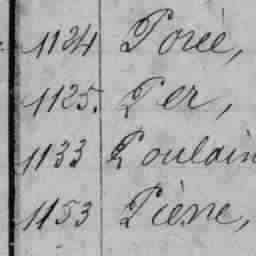 1124 Porée,
1125. Per,
1133 Poulain
1153 Pièrre,